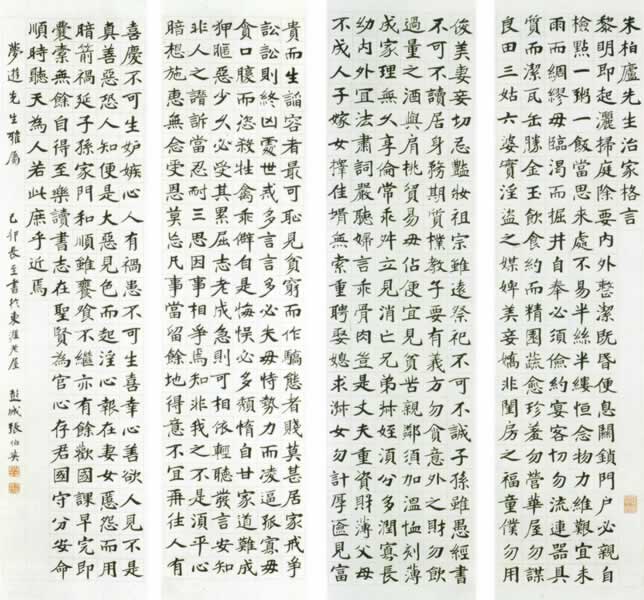 朱柏廬先生治家格言
黎明即起灑掃庭除要內外整潔既昏便息關鎖門戶必親自
檢點一粥一飯當思來處不易半絲半縷恒念物力維艱宜未
雨而綢繆毋臨渴而掘井自奉必須儉約宴客切勿流連器具
質而潔瓦缶勝金玉飲食約而精園蔬愈珍羞勿營華屋勿謀
良田三姑六婆實淫盜之媒婢美妾嬌非閨房之福童僕勿用
俊美妻妾切忌豔妝祖宗雖遠祭祀不可不誠子孫雖愚經書
不可不讀居身務期質樸教子要有義方勿貪意外之財勿飲
過量之酒與肩挑貿易毋佔便宜見貧苦親鄰須加溫恤刻薄
成家理無久享倫常乖舛立見消亡兄弟叔姪須分多潤寡長
幼內外宜法肅詞嚴聽婦言乖骨肉豈是丈夫重資財薄父母
不成人子嫁女擇佳壻無索重聘娶媳求淑女勿計厚奩見富
貴而生諂容者最可恥見貧窮而作驕態者賤莫甚居家戒爭
訟訟則終凶處世戒多言言多必失毋恃勢力而凌逼孤寡毋
貪口腹而恣殺牲禽乖僻自是悔悞必多頹惰自甘家道難成
狎暱惡少久必受其累屈志老成急則可相依輕聽發言安知
非人之譖訴當忍耐三思因事相爭焉知非我之不是須平心
暗想施惠無念受恩莫忘凡事當留餘地得意不宜再往人有
喜慶不可生妒嫉心人有禍患不可生喜幸心善欲人見不是
真善惡恐人知便是大惡見色而起淫心報在妻女匿怨而用
暗箭禍延子孫家門和順雖饔飧不繼亦有餘歡國課早完即
囊橐無餘自得至樂讀書志在聖賢為官心存君國守分安命
順時聽天為人若此庶乎近焉
夢遊先生雅屬 己卯長至書於東涯老屋 彭城張伯英